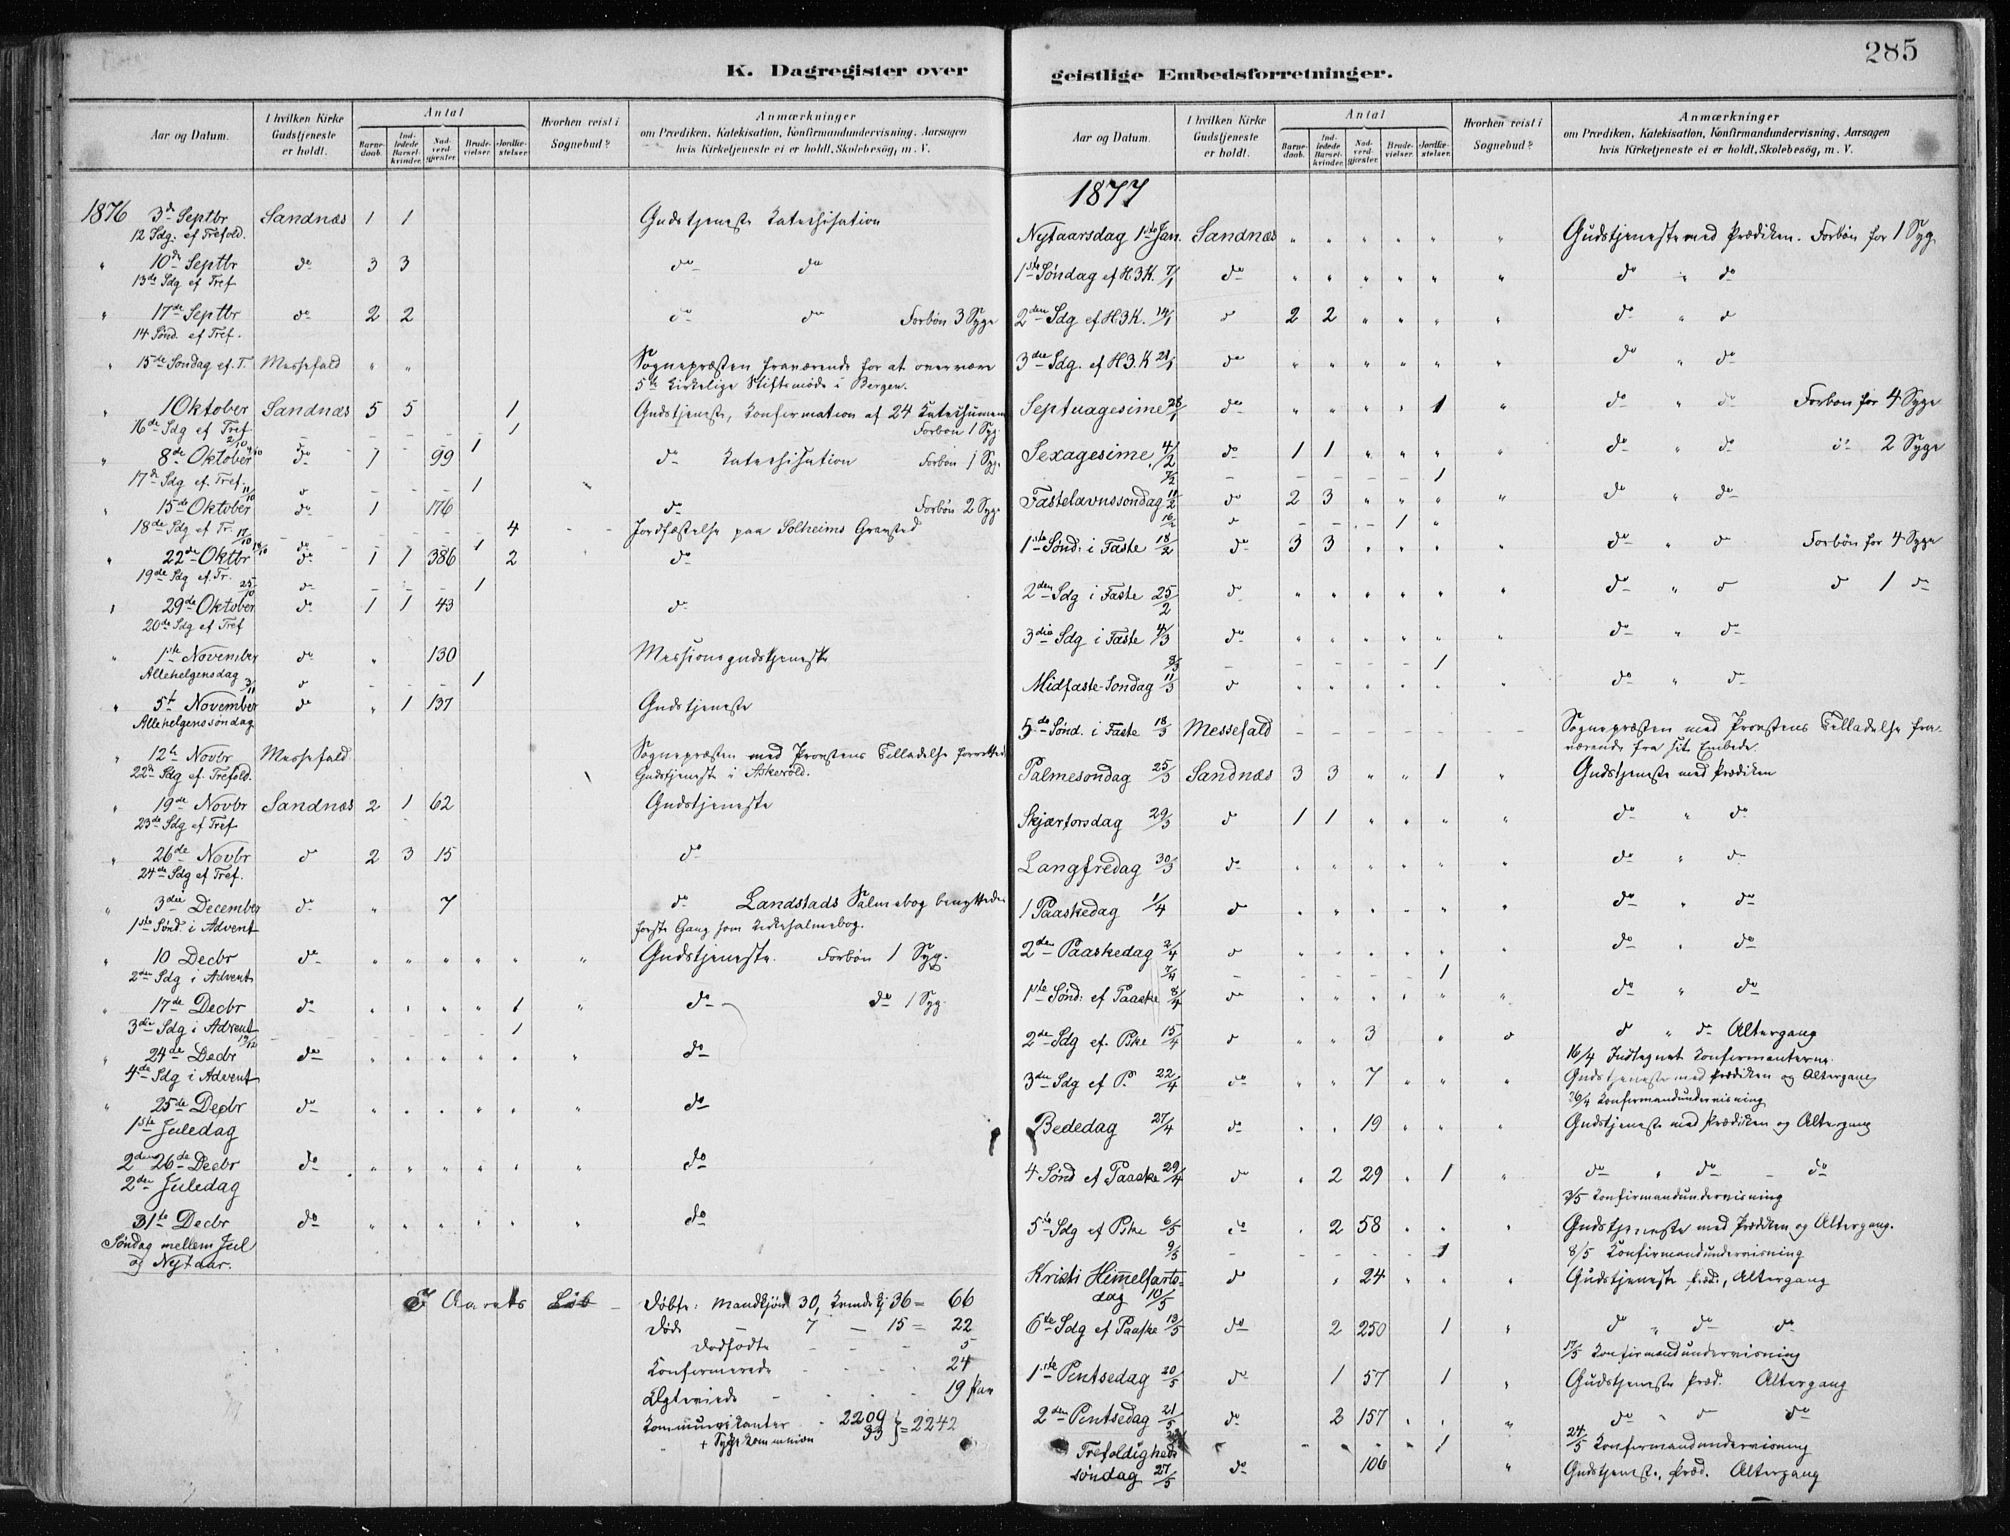 285
K. Dagregister over
Aar og Datum. I hvilken Kirke Gudstjeneste er holdt. Antal Barnedaab. Indledede Barselkvinder. Nadverdgjester. Brudevielser. Jordfæstelser. Hvorhen reist i Sognebud? Anmærkninger om Prædiken, Katekisation, Konfirmandundervisning, Aarsagen hvis Kirketjeneste ei er holdt, Skolebesøg, m. V.
1876 3de Septbr Sandnæs 1 1 Gudstjeneste Katechisation
12 Sdg. ef Trefold.
" 10de Septbr do 3 3 do do
13de Sdg ef Tref
" 17de Septbr do 2 2 do do Forbøn 3 Syge
14 Sønd. ef Tref.
" 15de Søndag ef. T. Messefald " " Sognepræsten fraværende for at overvære
5te kirkelige Stiftsmøde i Bergen.
" 1 Oktober Sandnæs 5 5 1 Gudstjeneste, Konfirmation af 24 Katechumener
16de Sdg ef Tref 1 Forbøn 1 Syg.
2/10 4/10 1
" 8de Oktober do 1 99 do Katechisation Forbøn 1 Syg.
17de Sdg ef. Tref. 11/10 do 1
" 15de Oktober do 1 176 do Forbøn 2 Syge
18de Sdg ef Tr. 17/10 4 Jordfæstelse paa Solheims Gravsted
18/10 do 1
" 22de Oktbr do 1 1 386 2 do
19de Sdg ef. Tr. 25/10 do 1
" 29de Oktober do 1 1 43 do
20de Sdg ef Tref
" 1ste November do " 130 Missionsgudstjeneste
Allehelgensdag 3/11 do 1
" 5te November do " 1 137 Gudstjeneste
Allehelgenssøndag
" 12te Novbr Messefald Sognepræsten med Provstens Tilladelse forrettede
22de Sdg ef. Trefold. Gudstjeneste i Askevold.
" 19de Novbr Sandnæs 2 1 62 Gudstjeneste
23de Sdg ef Tref
" 26de Novbr do 2 3 15 do
24de Sdg ef Tref.
" 3die December do " 7 do Landstads Salmebog benyttedes
1ste Sønd. i Advent første Gang som Kirkesalmebog.
" 10 Decbr do " " " " " " Gudstjeneste. Forbøn 1 Syg.
2den Sdg i Advent
" 17de Decbr do " " " " 1 " do do 1 Syg.
3die Sdg i Advent 19/12 1
" 24de Decbr do " " " " " " do
4de Sdg i Advent
" 25de Decbr do " " " " " " do
1ste Juledag
2den 26de Decbr do " " " " " " do
2den Juledag
31te Decbr do " " " " " " do
Søndag mellem Jul
og Nytaar.
I Aarets Løb Døbte: Mandkjøn 30, Kvindekj 36 = 66
Døde — 7 — 15 = 22
Dødfødte 5
Konfirmerede 24
Ægteviede 19 Par
Kommunikanter 2209 } = 2242
+ Sygekommunion 33
geistlige Embedsforretninger.
Aar og Datum. I hvilken Kirke Gudstjeneste er holdt. Antal Barnedaab. Indledede Barselkvinder. Nadverdgjester. Brudevielser. Jordfæstelser. Hvorhen reist i Sognebud? Anmærkninger om Prædiken, Katekisation, Konfirmandundervisning, Aarsagen hvis Kirketjeneste ei er holdt, Skolebesøg, m. V.
1877
Nytaarsdag 1ste Jan. Sandnæs " " " " " " Gudstjeneste med Prædiken. Forbøn for 1 Syg.
1ste Søndag ef H3K. 7/1 do " " " " " " do " do
2den Sdg ef H3K. 14/1 do 2 2 " " " " do " do
3die Sdg. ef H3.K 21/1 do " " " " " " do " do
Septuagesime 28/1 do " " " " 1 " do " do Forbøn for 4 Syge
Sexagesime 4/2 do 1 1 " " " " do " do do 2 Syge
7/2 1
Fastelavnssøndag 11/2 do 2 3 " " " " do " do
16/2 do 1 "
1ste Sønd. i Faste 18/2 do 3 3 " " " " do " do Forbøn for 4 Syge
2den Sdg i Faste 25/2 do " " " " " " do " do do 1 do
3die Sdg i Faste 4/3 do " " " " " " do " do
8/3 1
Midfaste-Søndag 11/3 do " " " " " " do " do
5te Sønd. i Faste 18/3 Messefald Sognepræsten med Provstens Tilladelse fra-
værende fra sit Embede.
Palmesøndag 25/3 Sandnæs 3 3 " " 1 " Gudstjeneste med Prædiken
Skjærtorsdag 29/3 do 1 1 " " " " do " do
Langfredag 30/3 do " " " " " do " do
1 Paaskedag 1/4 do " " " " " " do " do
2den Paaskedag 2/4 do " " " " " " do " do
7/4 1
1ste Sønd. ef Paaske 8/4 do " " " " " " do " do
2den Sdg ef. Pske 15/4 do " " 3 " " do " do Altergang
16/4 Indtegnet Konfirmanterne.
3die Sdg ef P. 22/4 do " " 7 " " " Gudstjeneste med Prædiken og Altergang
26/4 Konfirmandundervisning
Bededag 27/4 do " " 19 " " " Gudstjeneste med Prædiken og Altergang
4. Sønd ef Paaske 29/4 do " 2 29 " 1 " do " do do
3/5 Konfirmandundervisning
5te Sdg ef Pske 6/5 do " 2 58 " " " Gudstjeneste med Prædiken og Altergang.
9/5 1 8/5 Konfirmandundervisning
Kristi Himmelfarts- do " 24 " " " Gudstjeneste Præd., Altergang
dag 10/5
6te Sdg ef Paaske 13/5 do 2 250 1 " do " do do
17/5 Konfirmandundervisning
1ste Pintsedag 20/5 do 1 57 1 " Gudstjeneste Præd. Altergang
2den Pintsedag 21/5 do 2 157 " " " do " do do
1 24/5 Konfirmandundervisning
Trefoldigheds
søndag 27/5 do 106 " Gudstjeneste, Præd. Altergang